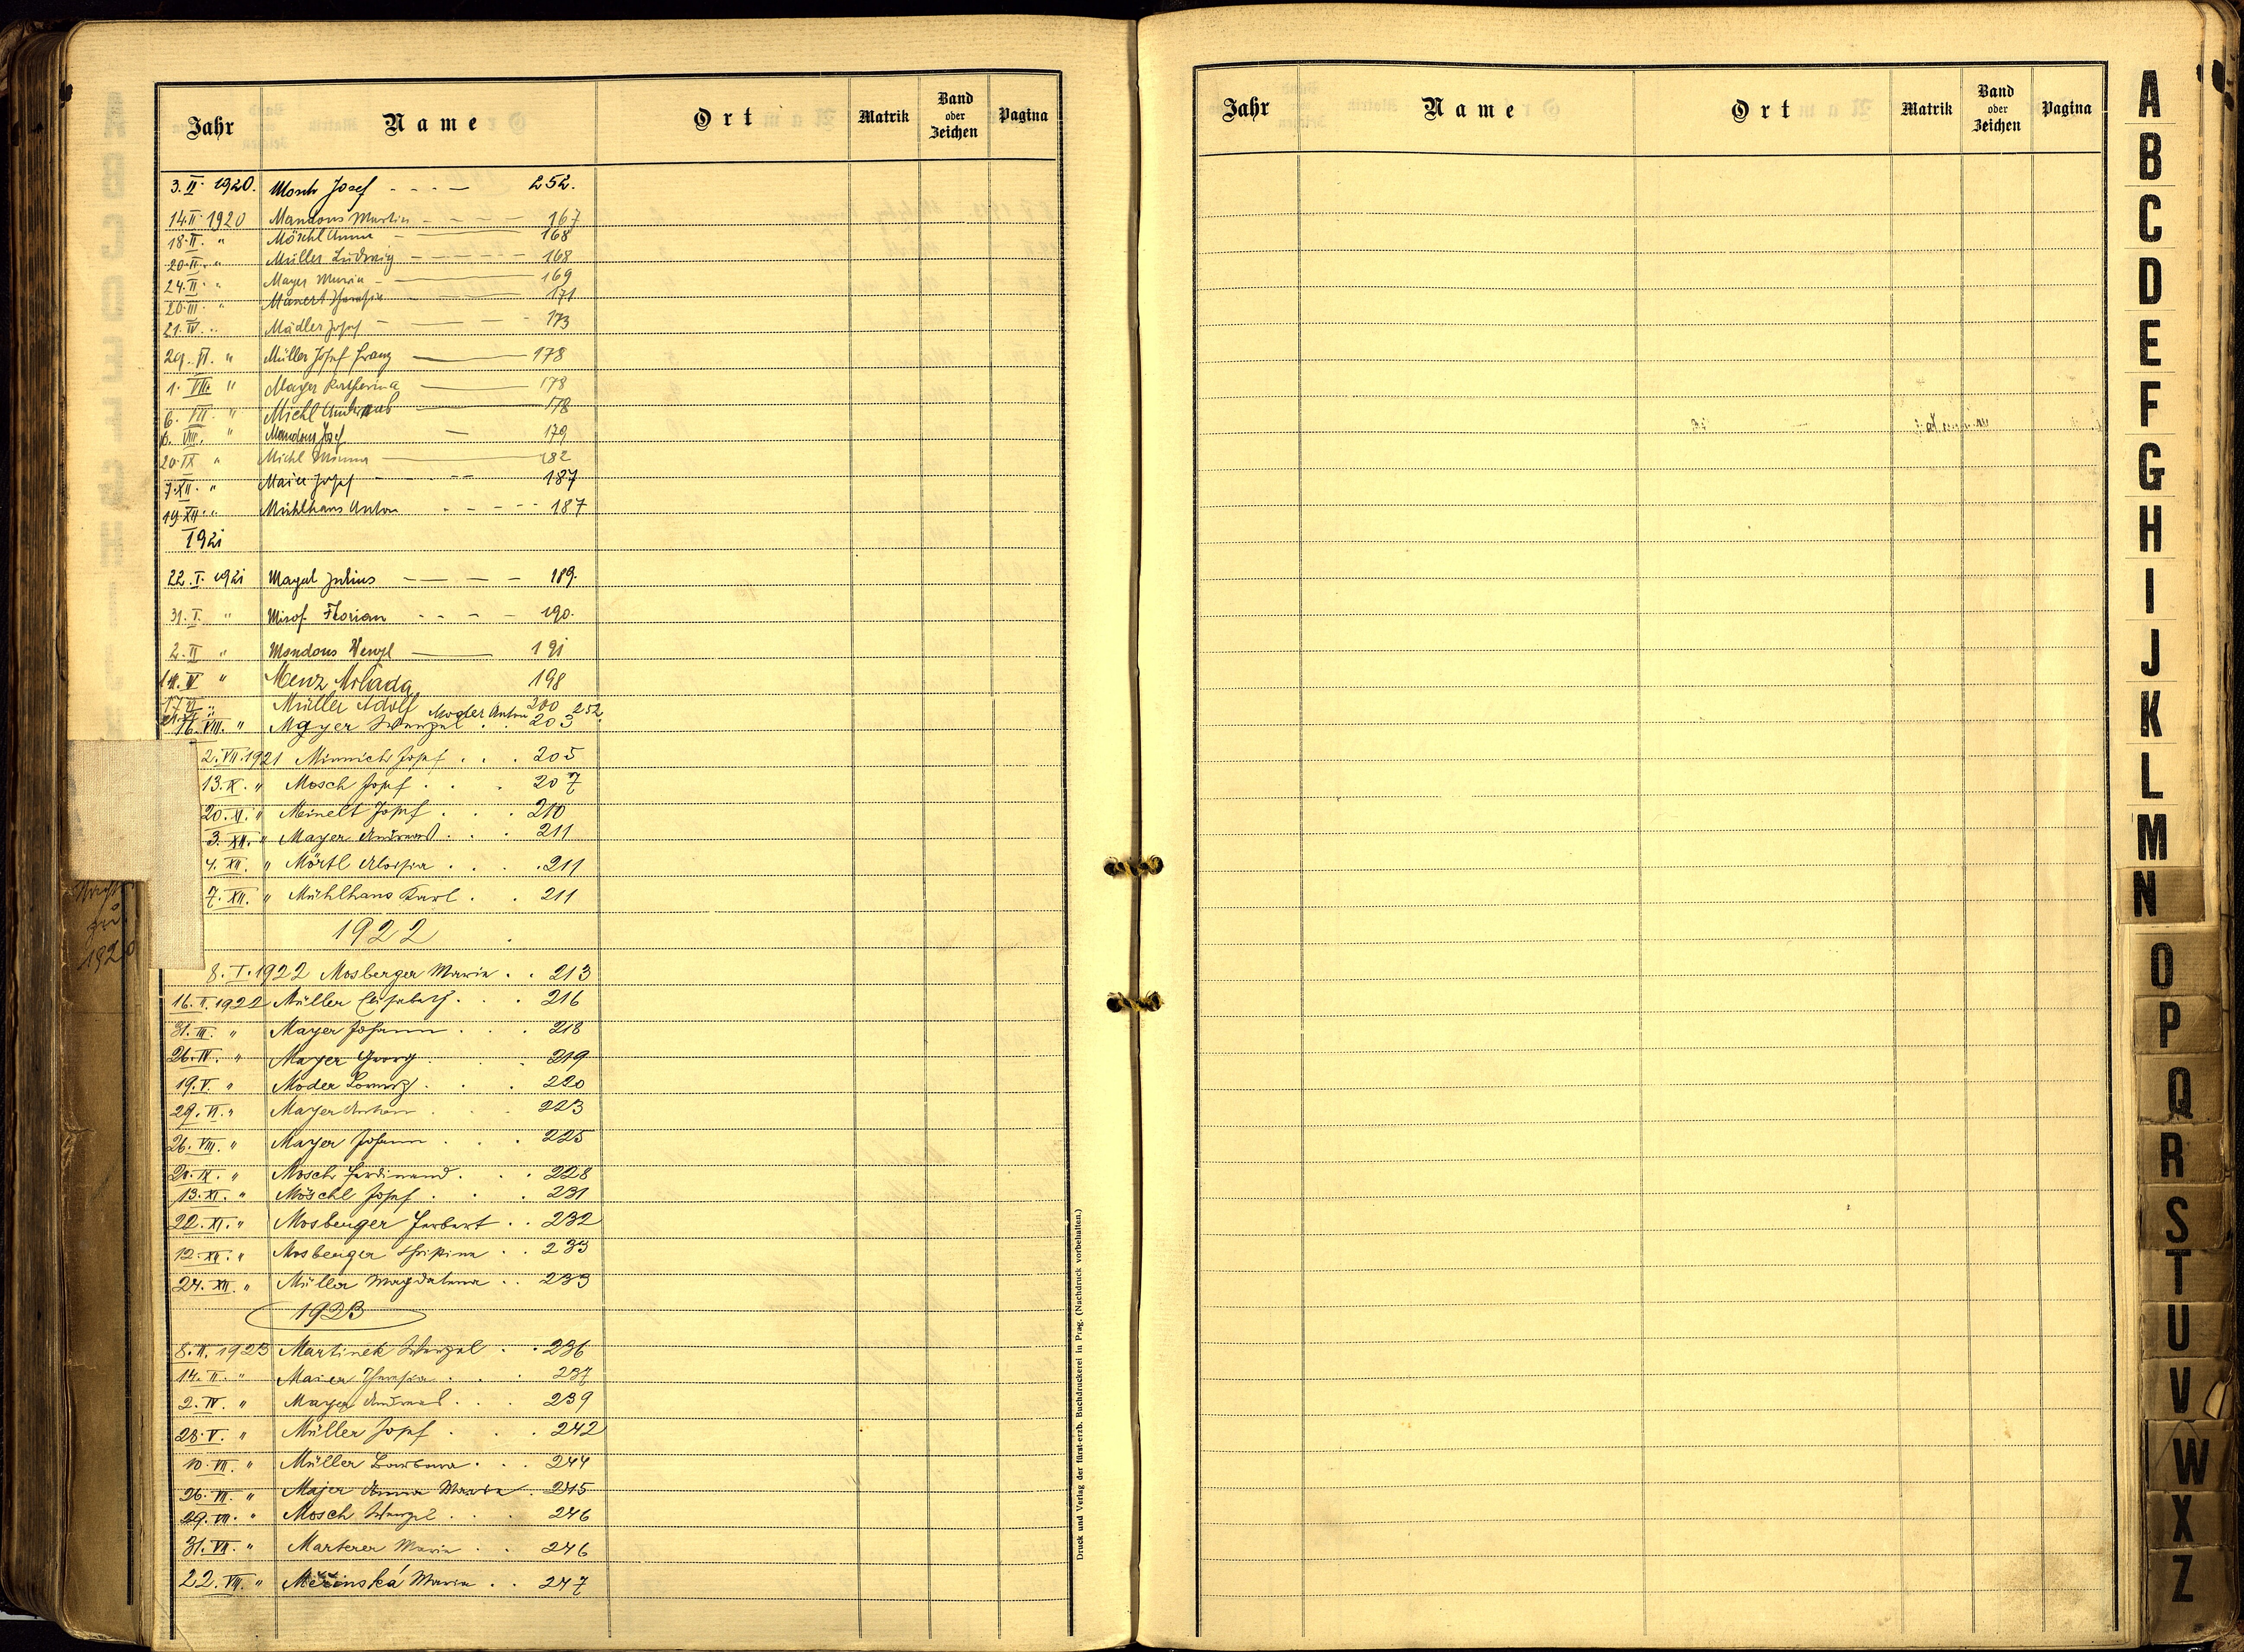 Jahr Name Ort Matrik Band oder Zeichen Pagina
3. II. 1920. Mosch Josef 252.
14. II. 1920 Mandous Martin 167
18. II. " Möschl Anna 168
20. II. " Müller Ludwig 168
24. II. " Mayer Maria 169
20. III. " Manert Theresia 171
21. IV. " Mädler Josef 173
29. VI. " Müller Josef Franz 178
1. VII. " Mayer Katharina 178
6. VII. " Michl Andreas 178
VIII. " Mandous Josef 179
20. IX " Michl Minna 182
7. XII. " Maier Josef 187
19. XII. " Mühlhans Anton 187
1921
22. I. 1921 Magal Julius 189.
31. I. " Florian 190.
2. II " Mandous Wenzl 191
14. IV " Menz Milada 198
17. VI " Müller Adolf 200
Moder Anton 252
16. VIII. " Mayer Wenzel 203
2. VII. 1921 Minnich Josef 205
13. X. " Mosch Josef 207
20. XI. " Meinelt Josef 210
3. XII. " Mayer Andreas 211
4. XII. " Mörtl Aloisia 211
7. XII. " Mühlhans Karl 211
1922
8. I. 1922 Mosberger Maria 213
16. II. 1922 Müller Elisabeth 216
31. III. " Mayer Johann 218
26. IV. " Mayer Georg 219
19. V. " Moder Lorenz 220
29. VI. " Mayer Anton 223
26. VIII. " Mayer Johann 225
20. IX. " Mosch Ferdinand 228
13. XI. " Möschl Josef 231
22. XI. " Mosberger Herbert 232
12. XII. " Mosberger Christina 233
24. XII. " Müller Magdalena 233
1923
8. II. 1923 Martinek Wenzel 236
14. II. " Maier Theresia 237
2. IV. " Mayer Andreas 239
28. V. " Müller Josef 242
10. VII. " Müller Barbara 244
26. VII. " Majer Anna Maria 245
29. VII. " Mosch Wenzel 246
31. VII. " Marterer Maria 246
22. VIII. " Měřinská Maria 247
zu
1920
Druck und Verlag der fürst-erzb. Buchdruckerei in Prag. (Nachdruck vorbehalten.)
Jahr Name Ort Matrik Band oder Zeichen Pagina
A
B
C
D
E
F
G
H
I
J
K
L
M
N
O
P
Q
R
S
T
U
V
W
X
Z